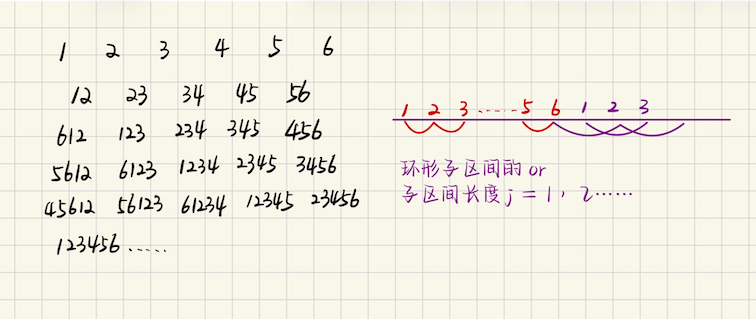 1 2 3 4 5 6
12 23 34 45 56
612 123 234 345 456
5612 6123 1234 2345 3456
45612 56123 61234 12345 23456
123456 ......
1 2 3 ...... 5 6 1 2 3
环形子区间的 or
子区间长度 j = 1, 2 ......